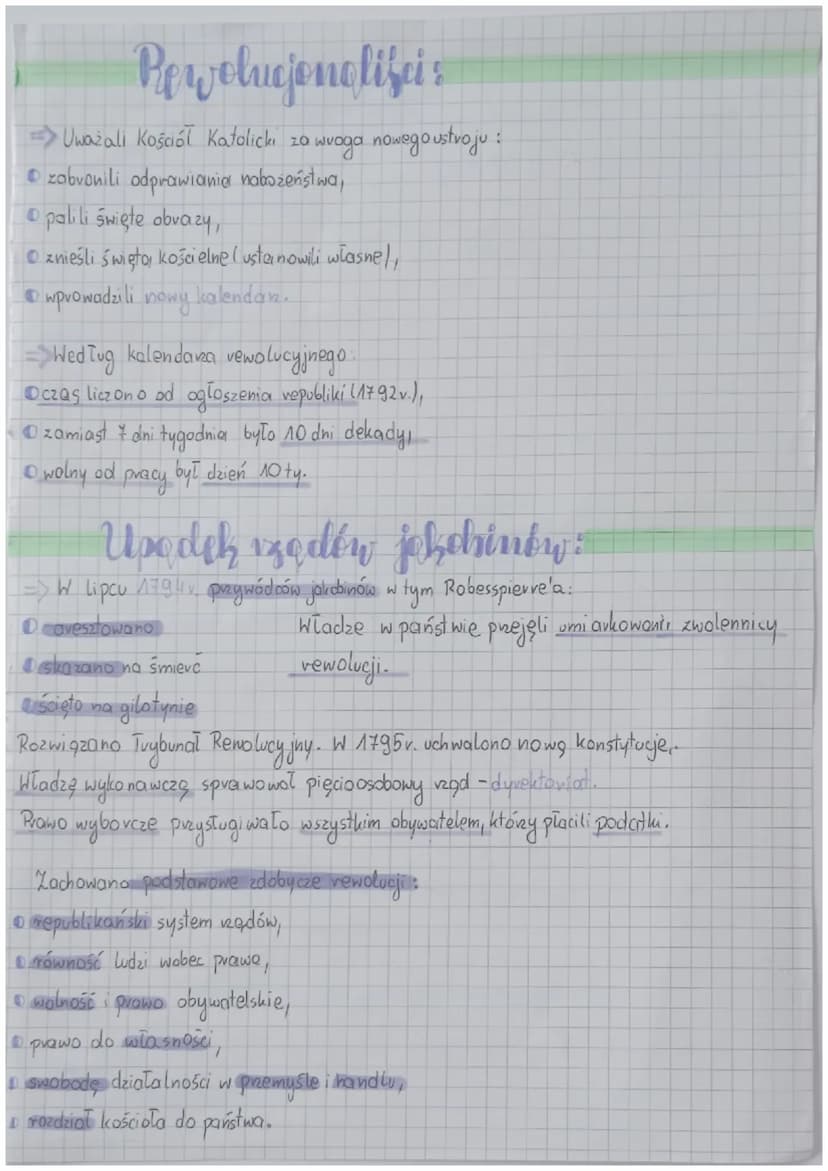 Rewolucjonaliści:
=> Uważali Kościół Katolicki za wroga nowego ustroju:
zabronili odprawiania nabożeństwa,
palili święte obrazy,
znieśli święta kościelne (ustanowili własne),
wprowadzili nowy kalendarz.
=> Według kalendarza rewolucyjnego:
czas liczono od ogłoszenia republiki (1792r.),
zamiast 7 dni tygodnia było 10 dni dekady,
wolny od pracy był dzień 10ty.
Upadek rządów jakobinów:
=> W lipcu 1794r. przywódców jakobinów w tym Robesspierre'a:
aresztowano
skazano na śmierć
ścięto na gilotynie
Władze w państwie przejęli umiarkowani zwolennicy
rewolucji.
Rozwiązano Trybunał Rewolucyjny. W 1795r. uchwalono nową konstytucje.
Władzę wykonawczą sprawował pięcioosobowy rząd - dyrektoriat.
Prawo wyborcze przysługiwało wszystkim obywatelem, którzy płacili podatki.
Zachowano podstawowe zdobycze rewolucji:
republikański system rządów,
równość ludzi wobec prawa,
wolność i prawo obywatelskie,
prawo do własności,
swobodę działalności w przemyśle i handlu,
rozdział kościoła do państwa.